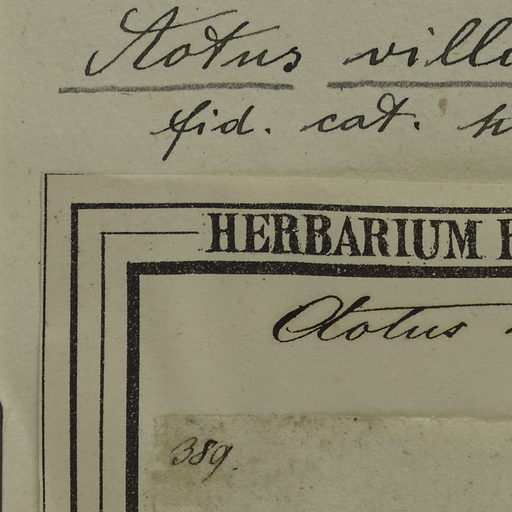 Stotus villo
fid. cat. h
HERBARIUM
Ototus
389.